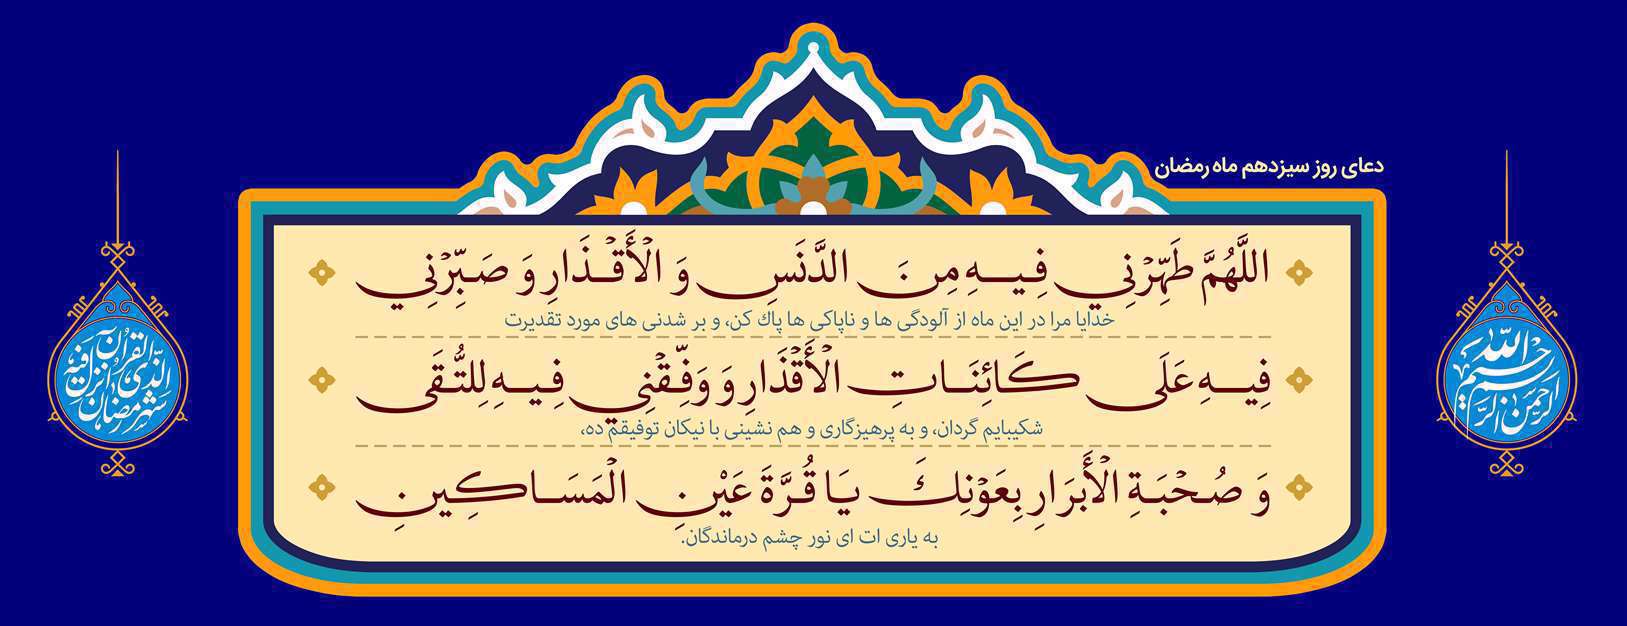 دعای روز سیزدهم ماه رمضان
اللَّهُمَّ طَهِّرْنِي فِيهِ مِنَ الدَّنَسِ وَ الْأَقْذَارِ وَ صَبِّرْنِي
خدایا مرا در این ماه از آلودگی ها و ناپاکی ها پاك كن، و بر شدنی های مورد تقدیرت
فِيهِ عَلَى كَائِنَاتِ الْأَقْذَارِ وَ وَفِّقْنِي فِيهِ لِلتُّقَى
شکیبایم گردان، و به پرهیزگاری و هم نشینی با نیکان توفیقم ده،
وَ صُحْبَةِ الْأَبْرَارِ بِعَوْنِكَ يَا قُرَّةَ عَيْنِ الْمَسَاكِينِ
به یاری ات ای نور چشم درماندگان.
بسم الله الرحمن الرحیم
شهر رمضان الذی انزل فیه القرآن